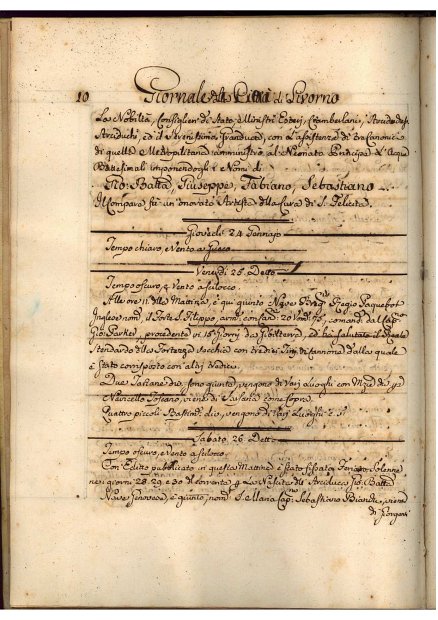 10 Giornale della Città di Livorno
La Nobiltà, Consiglieri di Stato, e Ministri Esteri, Ciamberlani, Arciduchesse
Arciduchi ed il Serenissimo Granduca, con l'assistenza di tre Canonici
di quella Metropolitana amministrò al Neonato Principe l'Acque
Battesimali imponendogli i Nomi di
Gio: Batta, Giuseppe, Fabiano, Sebastiano
Il Compare fu un onorato Artista della Cura di S. Felicita.
Giovedì 24 Gennajo
Tempo chiaro, e Vento a Greco
Venerdì 25 Detto
Tempo oscuro, e Vento a scilocco.
Alle ore 11 della Mattina, è qui giunto Regio Paquebot
Inglese nom. il Forte S. Filippo arm. con Can. 20 comand. dal Cap.
Gio: Parker, procedente in 18 Giorni da Gibilterra, ed ha salutato il Reale
Stendardo della Fortezza Vecchia con tredici Tiri di Cannone dalla quale
è stato corrisposto con altri
Due Tartane dio. sono giunte, vengono di Varj Luoghi con
Navicello Toscano, viene di Sarzana come sopra.
Quattro piccoli Bastim. dio. vengono di Varj Luoghi
Sabato 26 Detto
Tempo oscuro, e Vento a scilocco.
Con Editto pubblicato in questa Mattina è stato fissato
nei giorni 28. 29. e 30 del corrente p. la Nascita dell' Arciduca Gio: Batta
Nave Genovese, è giunto, nom. S. Maria Cap. Sebastiano Bianchi, viene
di